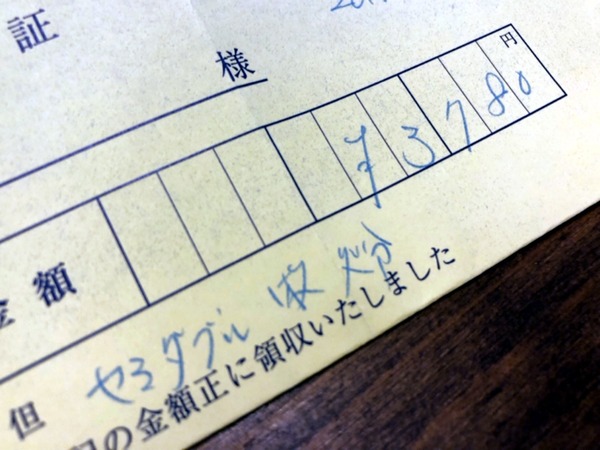 証
様
円
金額 ¥3780
但 セミダブル 1枚 処分
記の金額正に領収いたしました